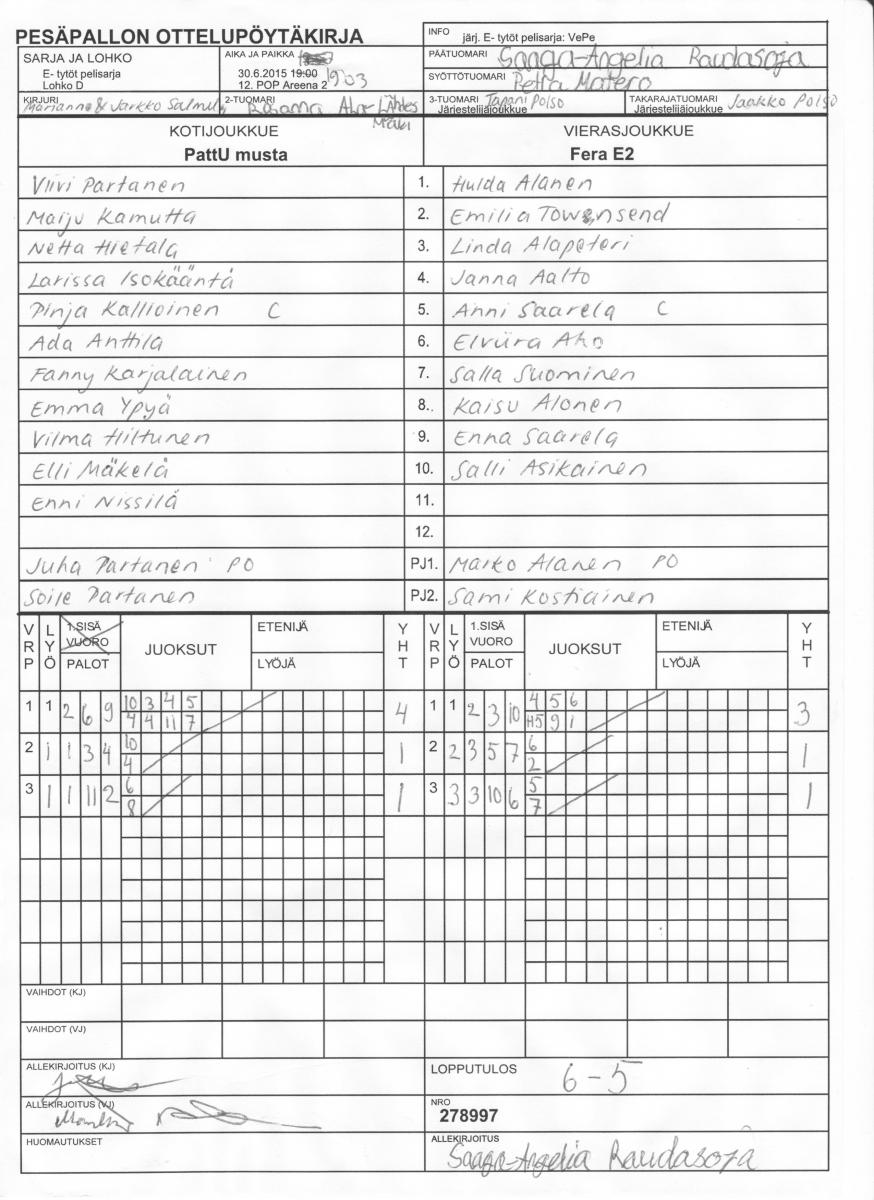 PESÄPALLON OTTELUPÖYTÄKIRJA
INFO järj. E- tytöt pelisarja: VePe
SARJA JA LOHKO
E- tytöt pelisarja
Lohko D
AIKA JA PAIKKA
30.6.2015 19:00 1903
12. POP Areena 2
PÄÄTUOMARI Saaga-Angelia Raudasoja
SYÖTTÖTUOMARI Petra Matero
KIRJURI
Marianne & Jarkko Salmu
2-TUOMARI
Rosanna
3-TUOMARI Tapani Polso
Järjestelijäjoukkue
TAKARAJATUOMARI Jaakko Polso
Järjestelijäjoukkue
KOTIJOUKKUE VIERASJOUKKUE
PattU musta Fera E2
Viivi Partanen 1. Hulda Alanen
Maiju Kamutta 2. Emilia Townsend
Netta Hietala 3. Linda Alapeteri
Larissa Isokääntä 4. Janna Aalto
Pinja Kallioinen C 5. Anni Saarela C
Ada Anttila 6. Elviira Aho
Fanny Karjalainen 7. Salla Suominen
Emma Ypyä 8. Kaisu Alonen
Vilma Hiltunen 9. Enna Saarela
Elli Mäkelä 10. Salli Asikainen
Enni Nissilä 11.
12.
Juha Partanen PO PJ1. Marko Alanen PO
Soile Partanen PJ2. Sami Kostiainen
VRP LYÖ 1.SISÄ VUORO PALOT JUOKSUT ETENIJÄ LYÖJÄ YHT VRP LYÖ 1.SISÄ VUORO PALOT JUOKSUT ETENIJÄ LYÖJÄ YHT
1 1 2 6 9 10 3 4 5 4 1 1 2 3 10 4 5 6 3
4 4 11 7 9 1
2 1 1 3 4 10 1 2 2 3 5 7 6 1
4 2
3 1 1 11 2 6 1 3 3 3 10 6 5 1
8 7
VAIHDOT (KJ)
VAIHDOT (VJ)
ALLEKIRJOITUS (KJ)
LOPPUTULOS 6-5
ALLEKIRJOITUS (VJ)
NRO
278997
HUOMAUTUKSET
ALLEKIRJOITUS
Saaga-Angelia Raudasoja